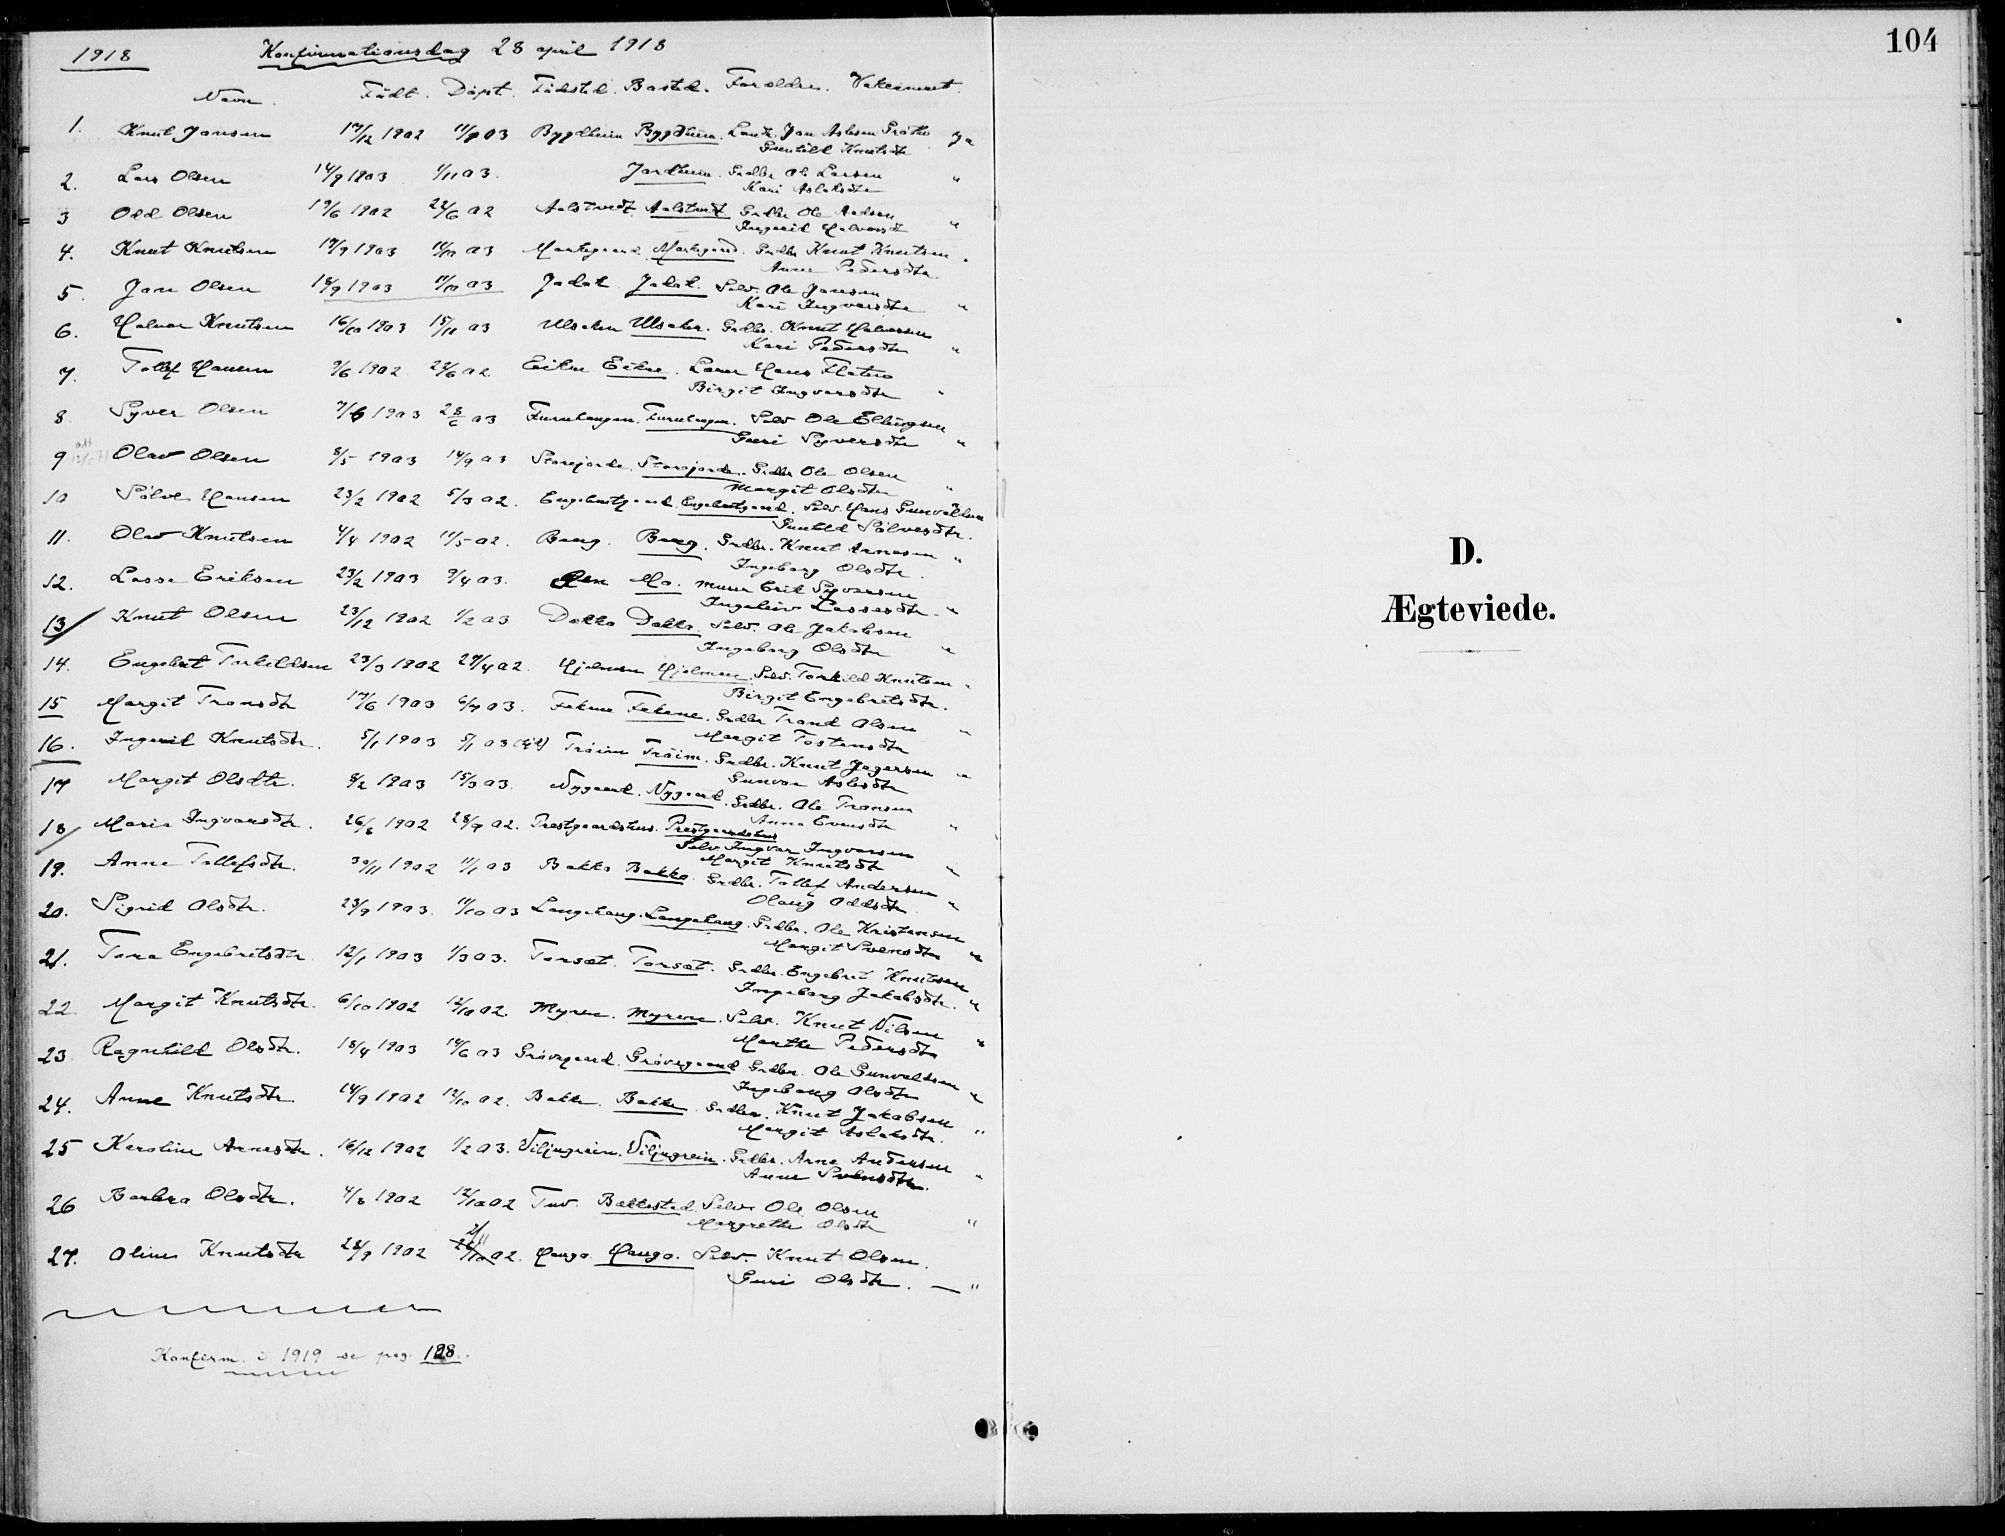 1918 Konfirmationsdag 28 april 1918
Navn. Födt. Döpt. Födested. Bosted. Forældre. Vakcineret.
1. Knut Jonsen 19/12 1902 03 Bygdheim Bygdheim. Jon Aslesen Gröthe ja
Gunhild Knutsdtr
2. Lars Olsen 14/9 1903 1/11 03. Jordheim. Grdbr Ole Larsen "
Kari Aslaksdtr
3 Odd Olsen 19/6 1902 22/6 02 Aalstvedt. Aalstvedt Grdbr Ole Oddsen
Ingerid Halvorsdt "
4. Knut Knutsen 19/9 1903 11/10 03 Markegaard. Markegaard. Grdbr Knut Knutsen "
Anne Pedersdtr.
5. Jon Olsen 18/9 1903 11/10 03 Jalat. Jalat. Selv. Ole Jonsen
Kari Ingvarsdtr "
6. Halvor Knutsen 16/10 1903 15/11 03 Ulsaker Ulsaker. Grdbr. Knut Halvorsen
Kari Pedersdtr "
7. Tollef Hansen 9/6 1902 29/6 02 Eikre Eikre. Lærer Hans Flaten
Birgit Ingvarsdtr "
8. Syver Olsen 7/6 1903 28/6 03 Furuhaugen. Furuhaugen. Selv Ole Ellingsen
Guri Syversdtr "
9 Olav Olsen 8/5 1903 14/9 03 Storejorde. Storejorde. Grdbr Ole Olsen
Margit Olsdtr "
10 Sölve Hansen 23/2 1902 5/3 02. Engebretgaard. Engebretgaard. Selv. Hans Gunvaldsen
Gunhild Sölvesdtr.
11. Olav Knutsen 4/4 1902 11/5 02. Berg. Berg. Grdbr. Knut Arnesen "
Ingeborg Olsdtr.
12. Lasse Eriksen 23/2 1903 9/4 03. Mo. Murer Erik Syversen
Ingeleiv Lassesdtr. "
13 Knut Olsen 23/12 1902 1/2 03 Dokko Dokko. Selv. Ole Jakobsen
Ingeborg Olsdtr "
14. Engebret Torkildsen 23/3 1902 27/4 02. Hjelmen Hjelmen. Selv. Torkild Knutsen "
Birgit Engebretsdtr.
15 Margit Tronsdtr 17/6 1903 03. Fekene Fekene. Grdbr Trond Olsen
Margit Tostensdtr "
16. Ingerid Knutsdtr. 5/1 1903 5/1 03 Tröim Tröim. Grdbr. Knut Jegersen "
Gunvor Aslesdtr
17 Margit Olsdtr. 8/2 1903 15/3 03. Nygaard. Nygaard. Grdbr. Ole Tronsen
Anne Evensdtr "
18 Maria Ingvarsdtr. 26/8 1902 28/9 02. Prestgaardshus. Prestgaardshus
Selv. Ingvar Ingvarsen
Margit Knutsdtr "
19. Anne Tollefsdtr. 30/11 1902 11/1 03 Bakko Bakko. Grdbr. Tollef Andersen
Olaug Oddsdtr "
20. Sigrid Olsdtr. 23/9 1903. 11/10 03 Langehaug. Langehaug. Grdbr. Ole Kristensen
Margit Svensdtr "
21. Tora Engebretsdtr. 12/1 1903 1/3 03. Torset. Torset. Grdbr. Engebret Knutsen
Ingeborg Jakobsdtr. "
22. Margit Knutsdtr. 6/10 1902 12/10 02. Myren. Myren. Selv. Knut Nilsen
Marthe Pedersdtr "
23. Ragnhild Olsdtr. 18/4 1903 14/6 03 Grövegaard. Grövegaard Grdbr. Ole Gunvaldsen
Ingeborg Olsdtr "
24. Anne Knutsdtr 14/9 1902 12/10 02. Bakke. Bakke. Grdbr. Knut Jakobsen
Margit Aslaksdtr. "
25 Karoline Arnesdtr. 16/12 1902 1/2 03. Viljugrein. Viljugrein. Grdbr. Arne Andersen
Anne Svensdtr. "
26 Barbra Olsdtr. 4/8 1902 12/10 02 Tuv. Bakkestad Selv. Ole Olsen
Margrethe Olsdtr "
27. Oline Knutsdtr 28/9 1902 2/11 26/10 02. Hauga. Hauga. Selv. Knut Olsen.
Guri Olsdtr. — "
Konfirm. i 1919 se pag. 128.
104
D.
Ægteviede.